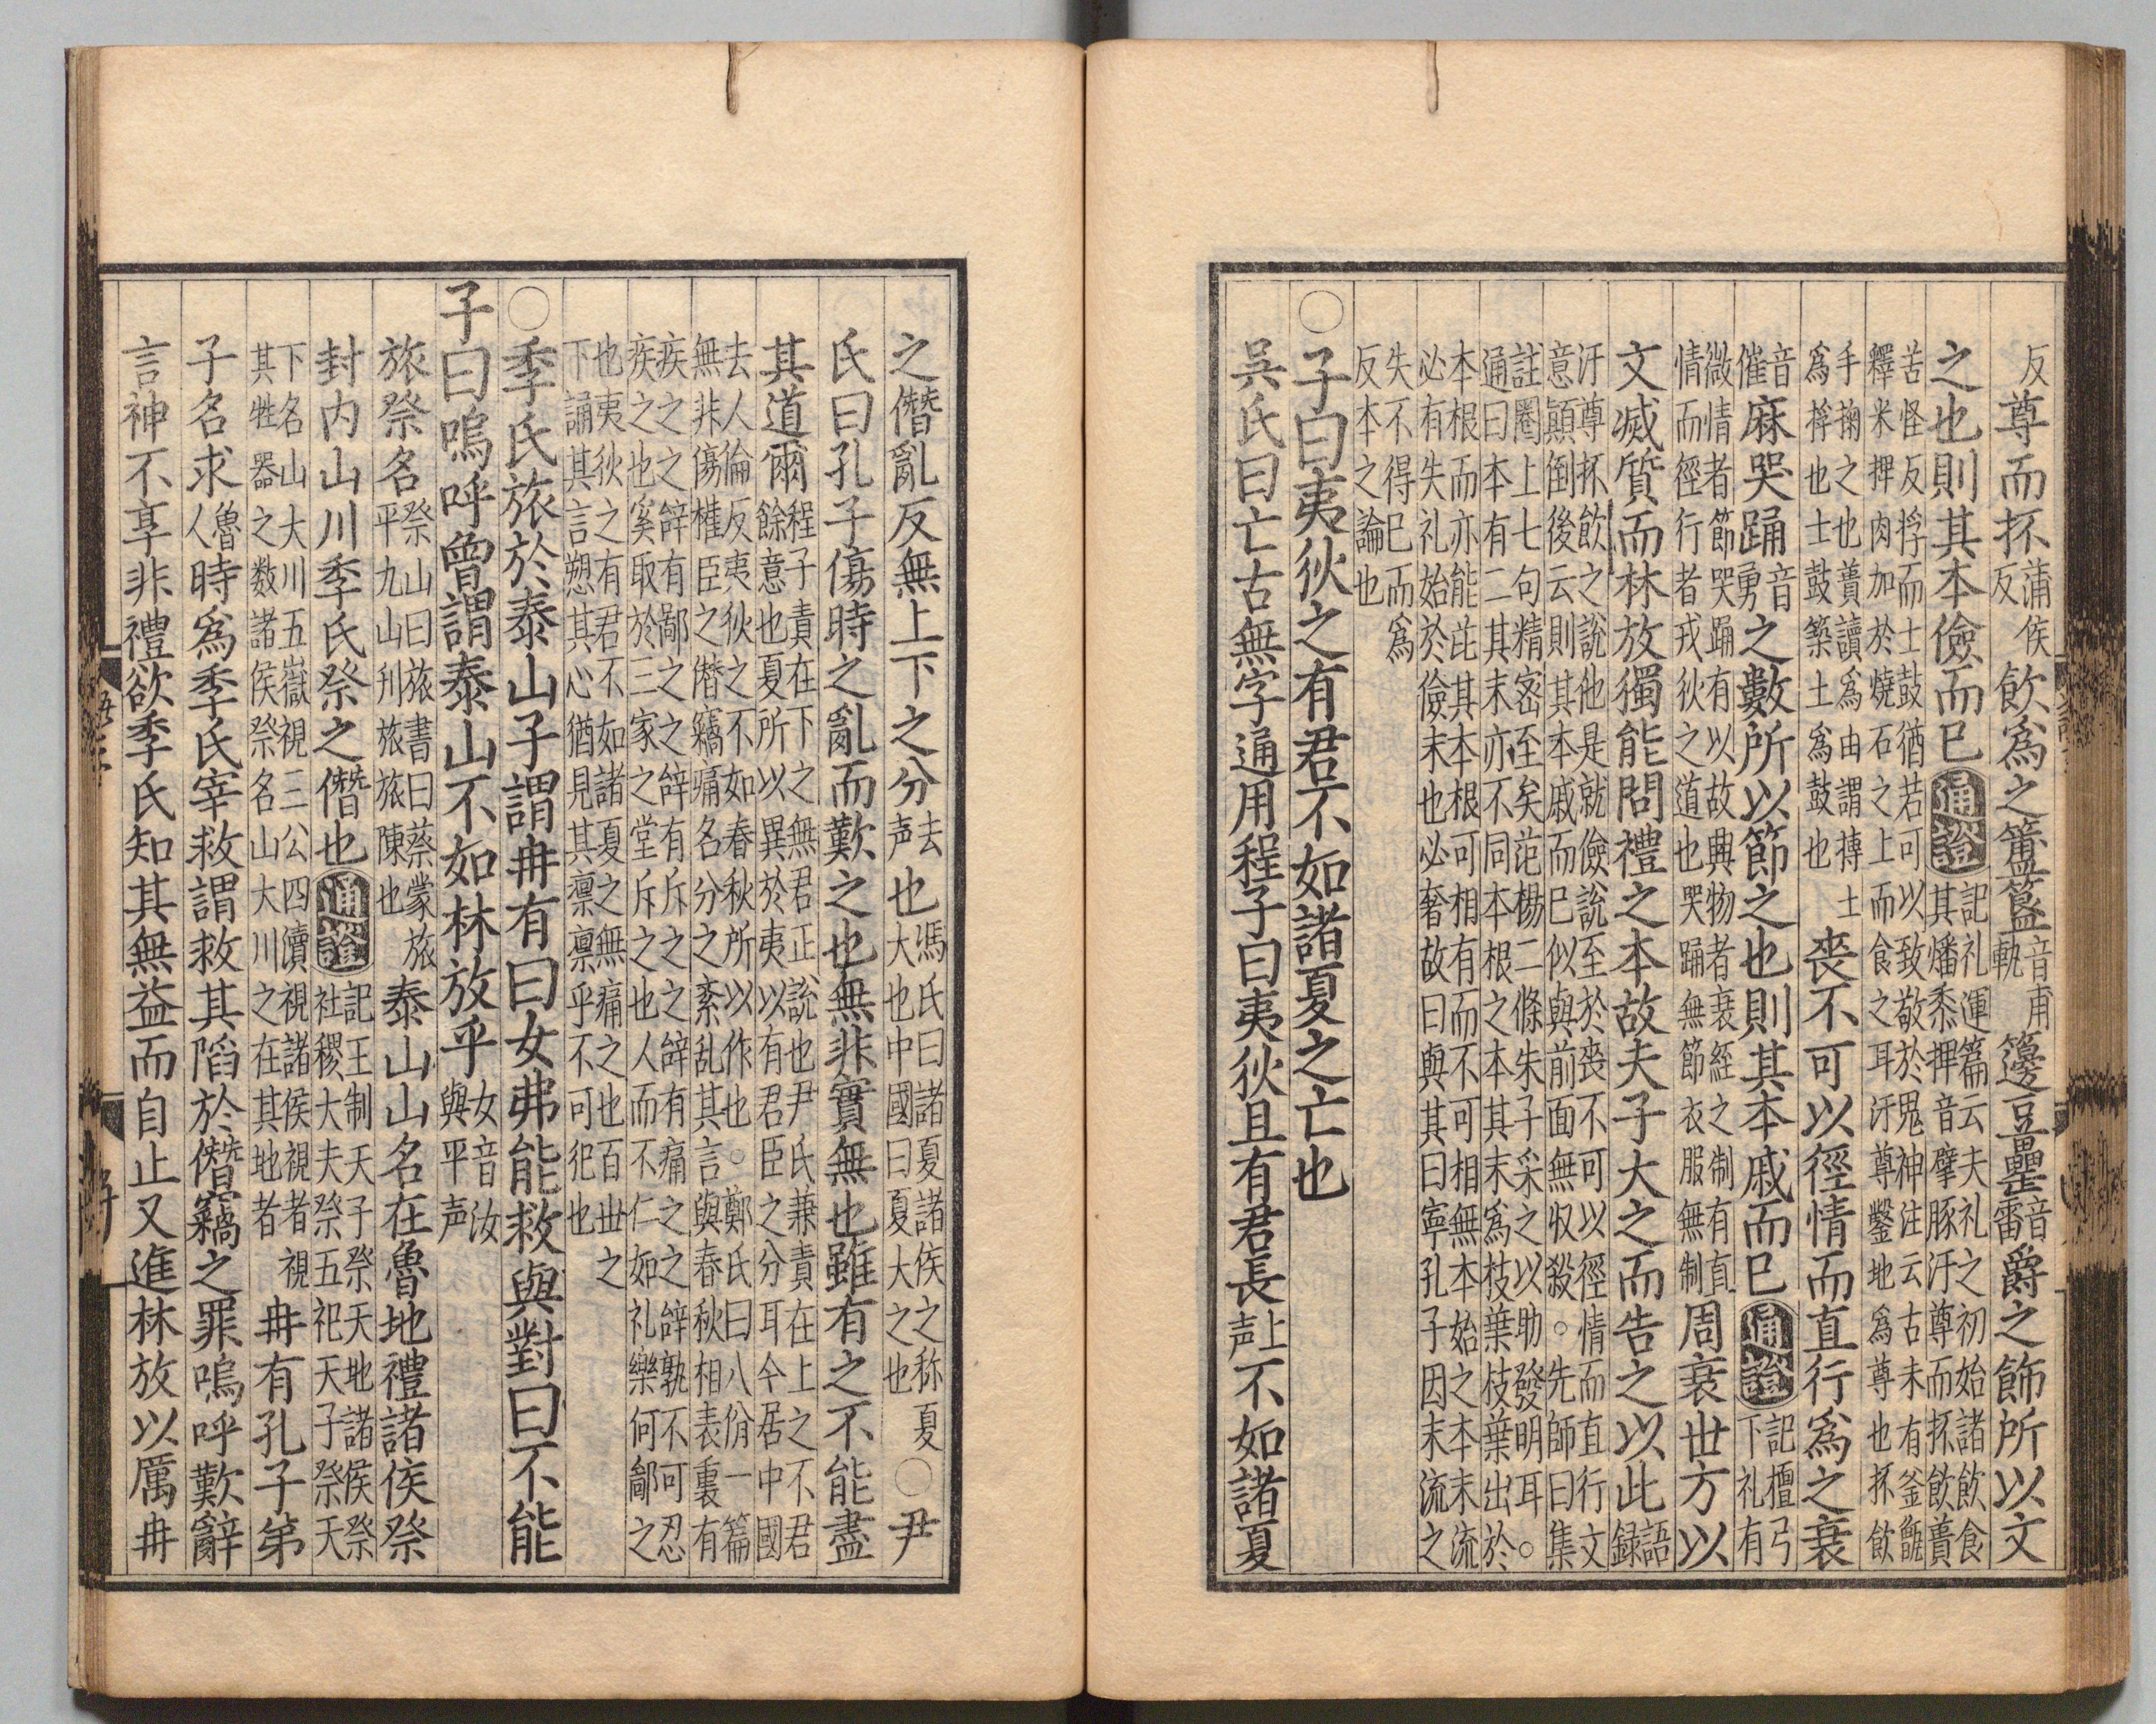 反尊而抔蒲侯反飲爲之簠簋音甫軌籩豆罍音雷爵之飾所以文
之也則其本儉而已通證記礼運篇云夫礼之初始諸飲食其燔黍捭音擘豚汙尊而抔飲蕢
苦怪反桴而土鼓猶若可以致敬於鬼神注云古未有釜甑釋米捭肉加於燒石之上而食之耳汙尊鑿地爲尊也抔飲
手掬之也蕢讀爲由謂摶土爲桴也土鼓築土爲鼓也喪不可以徑情而直行爲之衰
音催麻哭踊音勇之數所以節之也則其本戚而已通證記檀弓下礼有
微情者節哭踊有以故興物者衰絰之制有直情而徑行者戎狄之道也哭踊無節衣服無制周衰世方以
文滅質而林放獨能問禮之本故夫子大之而告之以此語録
汙尊抔飲之說他是就儉說至於喪不可以徑情而直行文意顛倒後云則其本戚而已似與前面無収殺○先師曰集
註圈上七句精密至矣范楊二條朱子采之以助發明耳○通曰本有二其末亦不同本根之本其末爲枝葉枝葉出於
本根而亦能芘其本根可相有而不可相無本始之本末流必有失礼始於儉末也必奢故曰與其曰寧孔子因末流之
失不得已而爲反本之論也
○子曰夷狄之有君不如諸夏之亡也
吳氏曰亡古無字通用程子曰夷狄且有君長上声不如諸夏
之僭亂反無上下之分去声也馮氏曰諸夏諸侯之称夏大也中國曰夏大之也○尹
氏曰孔子傷時之亂而歎之也無非實無也雖有之不能盡
其道爾程子責在下之無君正說也尹氏兼責在上之不君餘意也夏所以異於夷以有君臣之分耳今居中國
去人倫反夷狄之不如春秋所以作也○鄭氏曰八佾一篇無非傷權臣之僭竊痛名分之紊乱其言與春秋相表裏有
疾之之辞有鄙之之辞有斥之之辞有痛之之辞孰不可忍疾之也奚取於三家之堂斥之也人而不仁如礼樂何鄙之
也夷狄之有君不如諸夏之無痛之也百世之下誦其言愬其心猶見其凛凛乎不可犯也
○季氏旅於泰山子謂冉有曰女弗能救與對曰不能
子曰嗚呼曾謂泰山不如林放乎女音汝與平声
旅祭名祭山曰旅書曰蔡蒙旅平九山刋旅旅陳也泰山山名在魯地禮諸侯祭
封内山川季氏祭之僭也通證記王制天子祭天地諸侯祭社稷大夫祭五祀天子祭天
下名山大川五嶽視三公四瀆視諸侯視者視其牲器之数諸侯祭名山大川之在其地者冉有孔子第
子名求魯人時爲季氏宰救謂救其陷於僭竊之罪嗚呼歎辭
言神不享非禮欲季氏知其無益而自止又進林放以厲冉